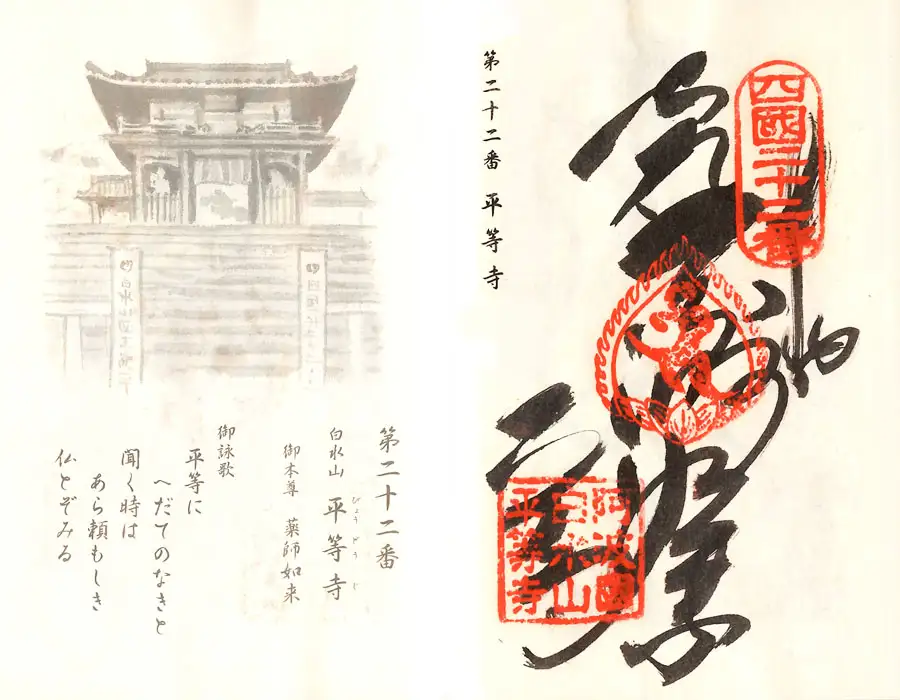 第二十二番 平等寺
奉納
四國二十二番
阿波國
白水山
平等寺
第二十二番
白水山 平等寺
びょう どう じ
御本尊 薬師如来
御詠歌
平等に
へだてのなきと
聞く時は
あら頼もしき
仏とぞみる